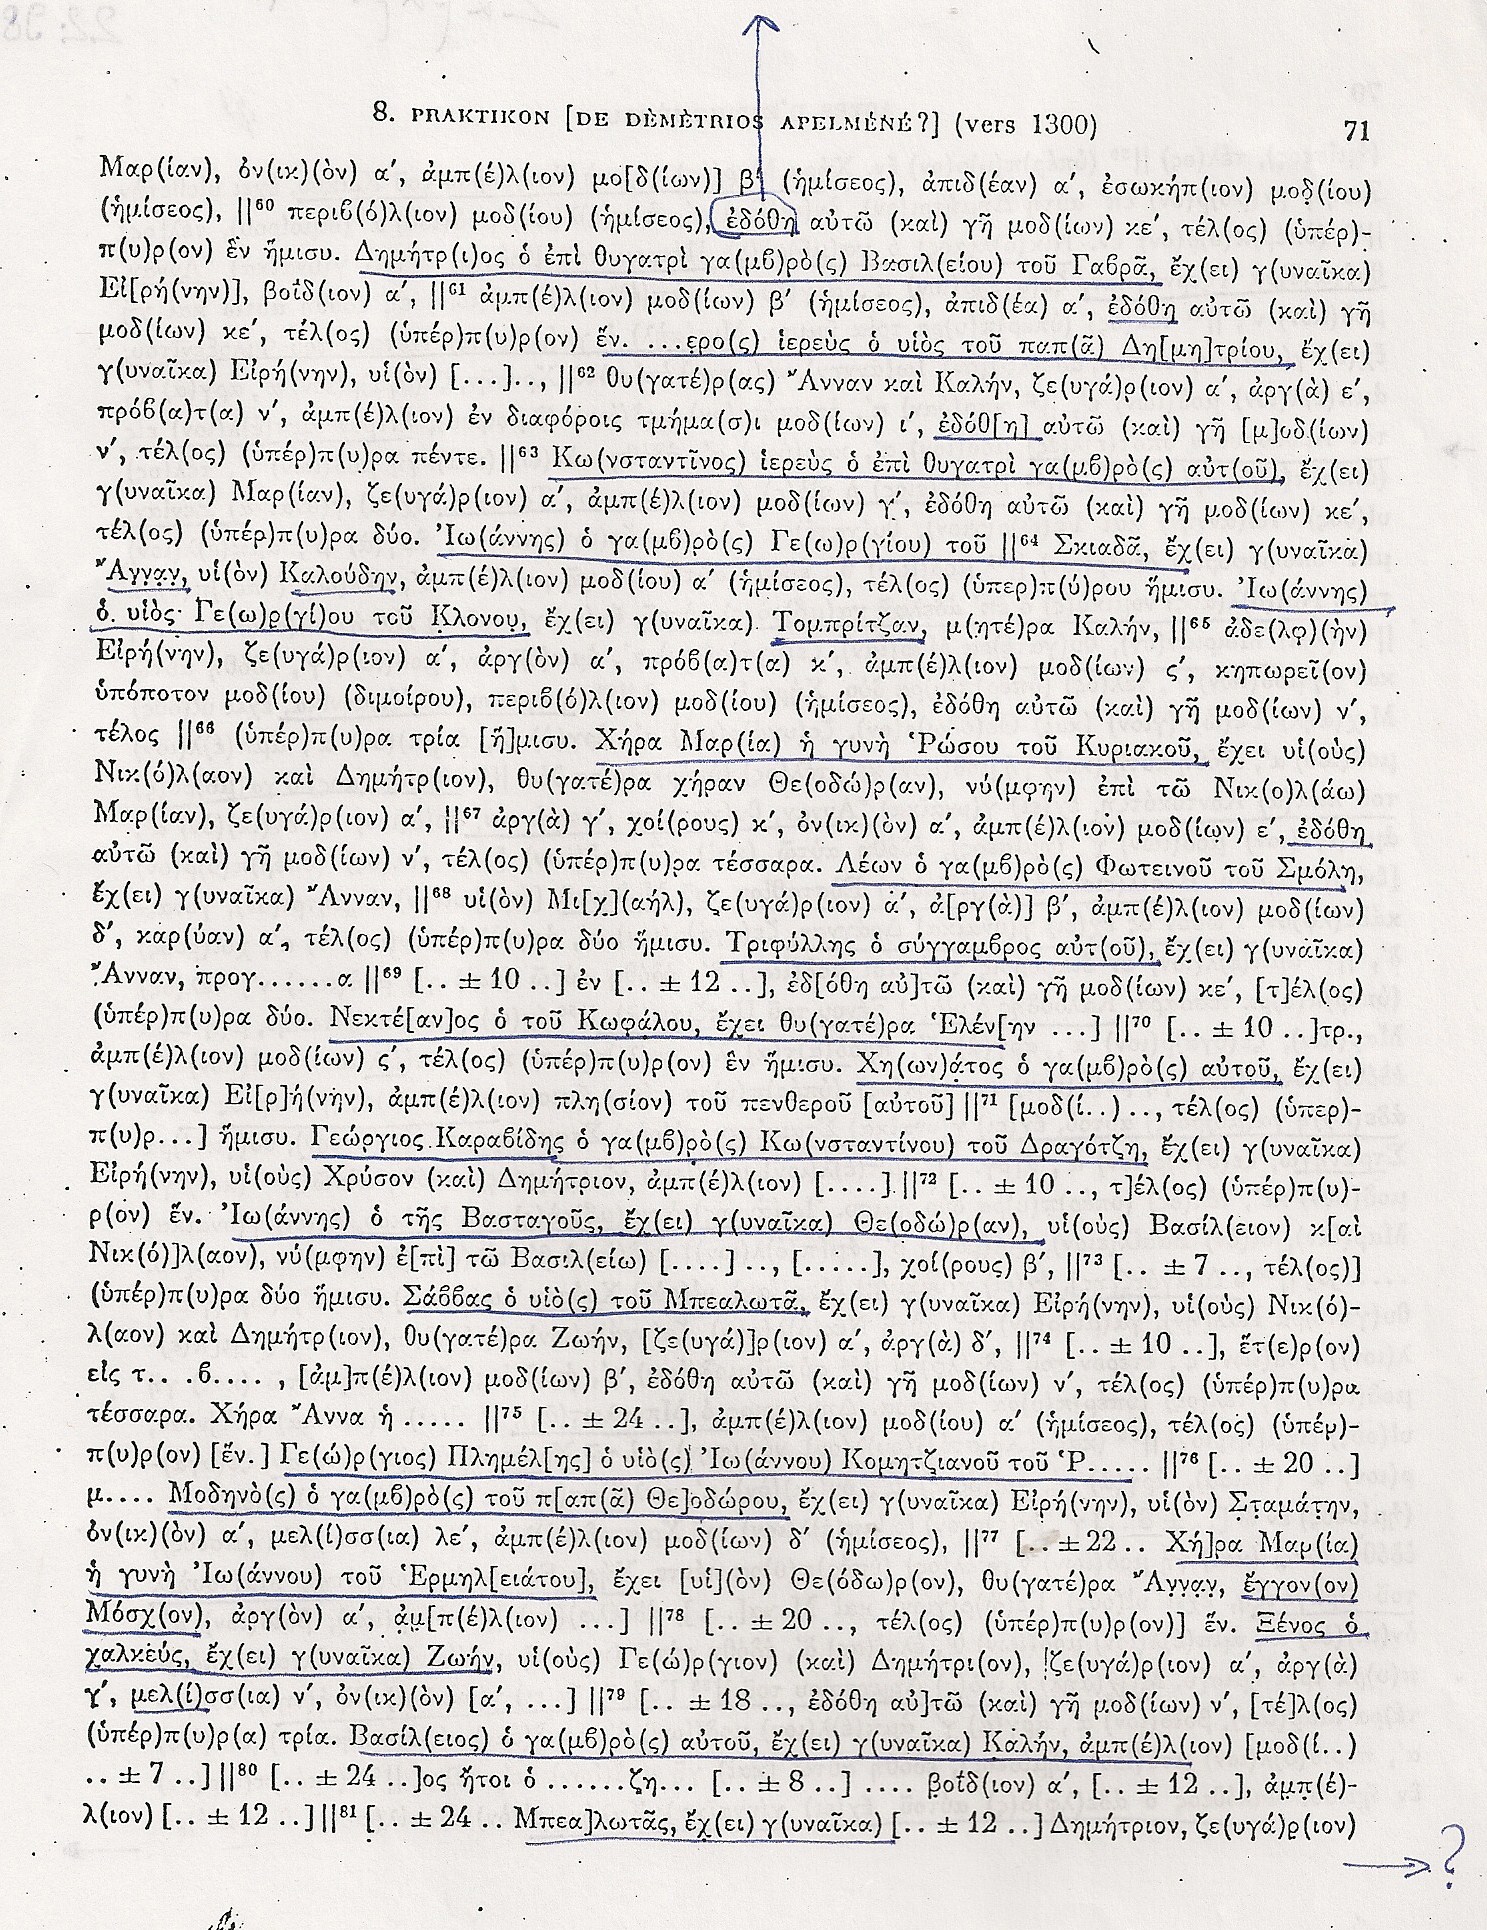 8. PRAKTIKON [DE DÈMÈTRIOS APELMÉNÉ?] (vers 1300)
71
Μαρ(ίαν), ὀν(ικ)(ὸν) α′, ἀμπ(έ)λ(ιον) μο[δ(ίων)] β′ (ἡμίσεος), ἀπιδ(έαν) α′, ἐσωκήπ(ιον) μοδ(ίου)
(ἡμίσεος), ||⁶⁰ περιβ(ό)λ(ιον) μοδ(ίου) (ἡμίσεος), ἐδόθη αὐτῶ (καὶ) γῆ μοδ(ίων) κε′, τέλ(ος) (ὑπέρ)-
π(υ)ρ(ον) ἓν ἥμισυ. Δημήτρ(ι)ος ὁ ἐπὶ θυγατρὶ γα(μβ)ρὸ(ς) Βασιλ(είου) τοῦ Γαβρᾶ, ἔχ(ει) γ(υναῖκα)
Εἰ[ρή(νην)], βοΐδ(ιον) α′, ||⁶¹ ἀμπ(έ)λ(ιον) μοδ(ίων) β′ (ἡμίσεος), ἀπιδ(έα) α′, ἐδόθη αὐτῶ (καὶ) γῆ
μοδ(ίων) κε′, τέλ(ος) (ὑπέρ)π(υ)ρ(ον) ἕν. ...ερο(ς) ἱερεὺς ὁ υἱὸς τοῦ παπ(ᾶ) Δη[μη]τρίου, ἔχ(ει)
γ(υναῖκα) Εἰρή(νην), υἱ(ὸν) [...].., ||⁶² θυ(γατέ)ρ(ας) Ἄνναν καὶ Καλήν, ζε(υγά)ρ(ιον) α′, ἀργ(ὰ) ε′,
πρόβ(α)τ(α) ν′, ἀμπ(έ)λ(ιον) ἐν διαφόροις τμήμα(σ)ι μοδ(ίων) ι′, ἐδόθ[η] αὐτῶ (καὶ) γῆ [μ]οδ(ίων)
ν′, τέλ(ος) (ὑπέρ)π(υ)ρα πέντε. ||⁶³ Κω(νσταντῖνος) ἱερεὺς ὁ ἐπὶ θυγατρὶ γα(μβ)ρὸ(ς) αὐτ(οῦ), ἔχ(ει)
γ(υναῖκα) Μαρ(ίαν), ζε(υγά)ρ(ιον) α′, ἀμπ(έ)λ(ιον) μοδ(ίων) γ′, ἐδόθη αὐτῶ (καὶ) γῆ μοδ(ίων) κε′,
τέλ(ος) (ὑπέρ)π(υ)ρα δύο. Ἰω(άννης) ὁ γα(μβ)ρὸ(ς) Γε(ω)ρ(γίου) τοῦ ||⁶⁴ Σκιαδᾶ, ἔχ(ει) γ(υναῖκα)
Ἄνναν, υἱ(ὸν) Καλούδην, ἀμπ(έ)λ(ιον) μοδ(ίου) α′ (ἡμίσεος), τέλ(ος) (ὑπερ)π(ύ)ρου ἥμισυ. Ἰω(άννης)
ὁ υἱὸς Γε(ω)ρ(γί)ου τοῦ Κλονου, ἔχ(ει) γ(υναῖκα) Τομπρίτζαν, μ(ητέ)ρα Καλήν, ||⁶⁵ ἀδε(λφ)(ὴν)
Εἰρή(νην), ζε(υγά)ρ(ιον) α′, ἀργ(ὸν) α′, πρόβ(α)τ(α) κ′, ἀμπ(έ)λ(ιον) μοδ(ίων) ς′, κηπωρεῖ(ον)
ὑπόποτον μοδ(ίου) (διμοίρου), περιβ(ό)λ(ιον) μοδ(ίου) (ἡμίσεος), ἐδόθη αὐτῶ (καὶ) γῆ μοδ(ίων) ν′,
τέλος ||⁶⁶ (ὑπέρ)π(υ)ρα τρία [ἥ]μισυ. Χήρα Μαρ(ία) ἡ γυνὴ Ῥώσου τοῦ Κυριακοῦ, ἔχει υἱ(οὺς)
Νικ(ό)λ(αον) καὶ Δημήτρ(ιον), θυ(γατέ)ρα χήραν Θε(οδώ)ρ(αν), νύ(μφην) ἐπὶ τῶ Νικ(ο)λ(άω)
Μαρ(ίαν), ζε(υγά)ρ(ιον) α′, ||⁶⁷ ἀργ(ὰ) γ′, χοί(ρους) κ′, ὀν(ικ)(ὸν) α′, ἀμπ(έ)λ(ιον) μοδ(ίων) ε′, ἐδόθη
αὐτῶ (καὶ) γῆ μοδ(ίων) ν′, τέλ(ος) (ὑπέρ)π(υ)ρα τέσσαρα. Λέων ὁ γα(μβ)ρὸ(ς) Φωτεινοῦ τοῦ Σμόλη,
ἔχ(ει) γ(υναῖκα) Ἄνναν, ||⁶⁸ υἱ(ὸν) Μι[χ](αήλ), ζε(υγά)ρ(ιον) α′, ἀ[ργ(ὰ)] β′, ἀμπ(έ)λ(ιον) μοδ(ίων)
δ′, καρ(ύαν) α′, τέλ(ος) (ὑπέρ)π(υ)ρα δύο ἥμισυ. Τριφύλλης ὁ σύγγαμβρος αὐτ(οῦ), ἔχ(ει) γ(υναῖκα)
Ἄνναν, προγ.......α ||⁶⁹ [.. ± 10 ..] ἐν [.. ± 12 ..], ἐδ[όθη αὐ]τῶ (καὶ) γῆ μοδ(ίων) κε′, [τ]έλ(ος)
(ὑπέρ)π(υ)ρα δύο. Νεκτέ[αν]ος ὁ τοῦ Κωφάλου, ἔχει θυ(γατέ)ρα Ἑλέν[ην ...] ||⁷⁰ [.. ± 10 ..]τρ.,
ἀμπ(έ)λ(ιον) μοδ(ίων) ς′, τέλ(ος) (ὑπέρ)π(υ)ρ(ον) ἓν ἥμισυ. Χη(ων)άτος ὁ γα(μβ)ρὸ(ς) αὐτοῦ, ἔχ(ει)
γ(υναῖκα) Εἰ[ρ]ή(νην), ἀμπ(έ)λ(ιον) πλη(σίον) τοῦ πενθεροῦ [αὐτοῦ] ||⁷¹ [μοδ(ί..) .., τέλ(ος) (ὑπερ)-
π(υ)ρ...] ἥμισυ. Γεώργιος Καραβίδης ὁ γα(μβ)ρὸ(ς) Κω(νσταντίνου) τοῦ Δραγότζη, ἔχ(ει) γ(υναῖκα)
Εἰρή(νην), υἱ(οὺς) Χρύσον (καὶ) Δημήτριον, ἀμπ(έ)λ(ιον) [....] ||⁷² [.. ± 10 .., τ]έλ(ος) (ὑπέρ)π(υ)-
ρ(ον) ἕν. Ἰω(άννης) ὁ τῆς Βασταγοῦς, ἔχ(ει) γ(υναῖκα) Θε(οδώ)ρ(αν), υἱ(οὺς) Βασίλ(ειον) κ[αὶ
Νικ(ό)]λ(αον), νύ(μφην) ἐ[πὶ] τῶ Βασιλ(είω) [....] .., [.....], χοί(ρους) β′, ||⁷³ [.. ± 7 .., τέλ(ος)]
(ὑπέρ)π(υ)ρα δύο ἥμισυ. Σάββας ὁ υἱὸ(ς) τοῦ Μπεαλωτᾶ, ἔχ(ει) γ(υναῖκα) Εἰρή(νην), υἱ(οὺς) Νικ(ό)-
λ(αον) καὶ Δημήτρ(ιον), θυ(γατέ)ρα Ζωήν, [ζε(υγά)]ρ(ιον) α′, ἀργ(ὰ) δ′, ||⁷⁴ [.. ± 10 ..], ἕτ(ε)ρ(ον)
εἰς τ.. .β.... , [ἀμ]π(έ)λ(ιον) μοδ(ίων) β′, ἐδόθη αὐτῶ (καὶ) γῆ μοδ(ίων) ν′, τέλ(ος) (ὑπέρ)π(υ)ρα
τέσσαρα. Χήρα Ἄννα ἡ ..... ||⁷⁵ [.. ± 24 ..], ἀμπ(έ)λ(ιον) μοδ(ίου) α′ (ἡμίσεος), τέλ(ος) (ὑπέρ)-
π(υ)ρ(ον) [ἕν.] Γε(ώ)ρ(γιος) Πλημέλ[ης] ὁ υἱὸ(ς) Ἰω(άννου) Κομητζιανοῦ τοῦ Ῥ..... ||⁷⁶ [.. ± 20 ..]
μ.... Μοδηνὸ(ς) ὁ γα(μβ)ρὸ(ς) τοῦ π[απ(ᾶ) Θε]οδώρου, ἔχ(ει) γ(υναῖκα) Εἰρή(νην), υἱ(ὸν) Σταμάτην,
ὀν(ικ)(ὸν) α′, μελ(ί)σσ(ια) λε′, ἀμπ(έ)λ(ιον) μοδ(ίων) δ′ (ἡμίσεος), ||⁷⁷ [.. ± 22 .. Χή]ρα Μαρ(ία)
ἡ γυνὴ Ἰω(άννου) τοῦ Ἑρμηλ[ειάτου], ἔχει [υἱ](ὸν) Θε(όδω)ρ(ον), θυ(γατέ)ρα Ἄνναν, ἔγγον(ον)
Μόσχ(ον), ἀργ(ὸν) α′, ἀμ[π(έ)λ(ιον) ...] ||⁷⁸ [.. ± 20 .., τέλ(ος) (ὑπέρ)π(υ)ρ(ον)] ἕν. Ξένος ὁ
χαλκεύς, ἔχ(ει) γ(υναῖκα) Ζωήν, υἱ(οὺς) Γε(ώ)ρ(γιον) (καὶ) Δημήτρι(ον), ζε(υγά)ρ(ιον) α′, ἀργ(ὰ)
γ′, μελ(ί)σσ(ια) ν′, ὀν(ικ)(ὸν) [α′, ...] ||⁷⁹ [.. ± 18 .., ἐδόθη αὐ]τῶ (καὶ) γῆ μοδ(ίων) ν′, [τέ]λ(ος)
(ὑπέρ)π(υ)ρ(α) τρία. Βασίλ(ειος) ὁ γα(μβ)ρὸ(ς) αὐτοῦ, ἔχ(ει) γ(υναῖκα) Καλήν, ἀμπ(έ)λ(ιον) [μοδ(ί..)
.. ± 7 ..] ||⁸⁰ [.. ± 24 ..]ος ἤτοι ὁ .......ζη... [.. ± 8 ..] .... βοΐδ(ιον) α′, [.. ± 12 ..], ἀμπ(έ)-
λ(ιον) [.. ± 12 ..] ||⁸¹ [.. ± 24 .. Μπεα]λωτᾶς, ἔχ(ει) γ(υναῖκα) [.. ± 12 ..] Δημήτριον, ζε(υγά)ρ(ιον)
?